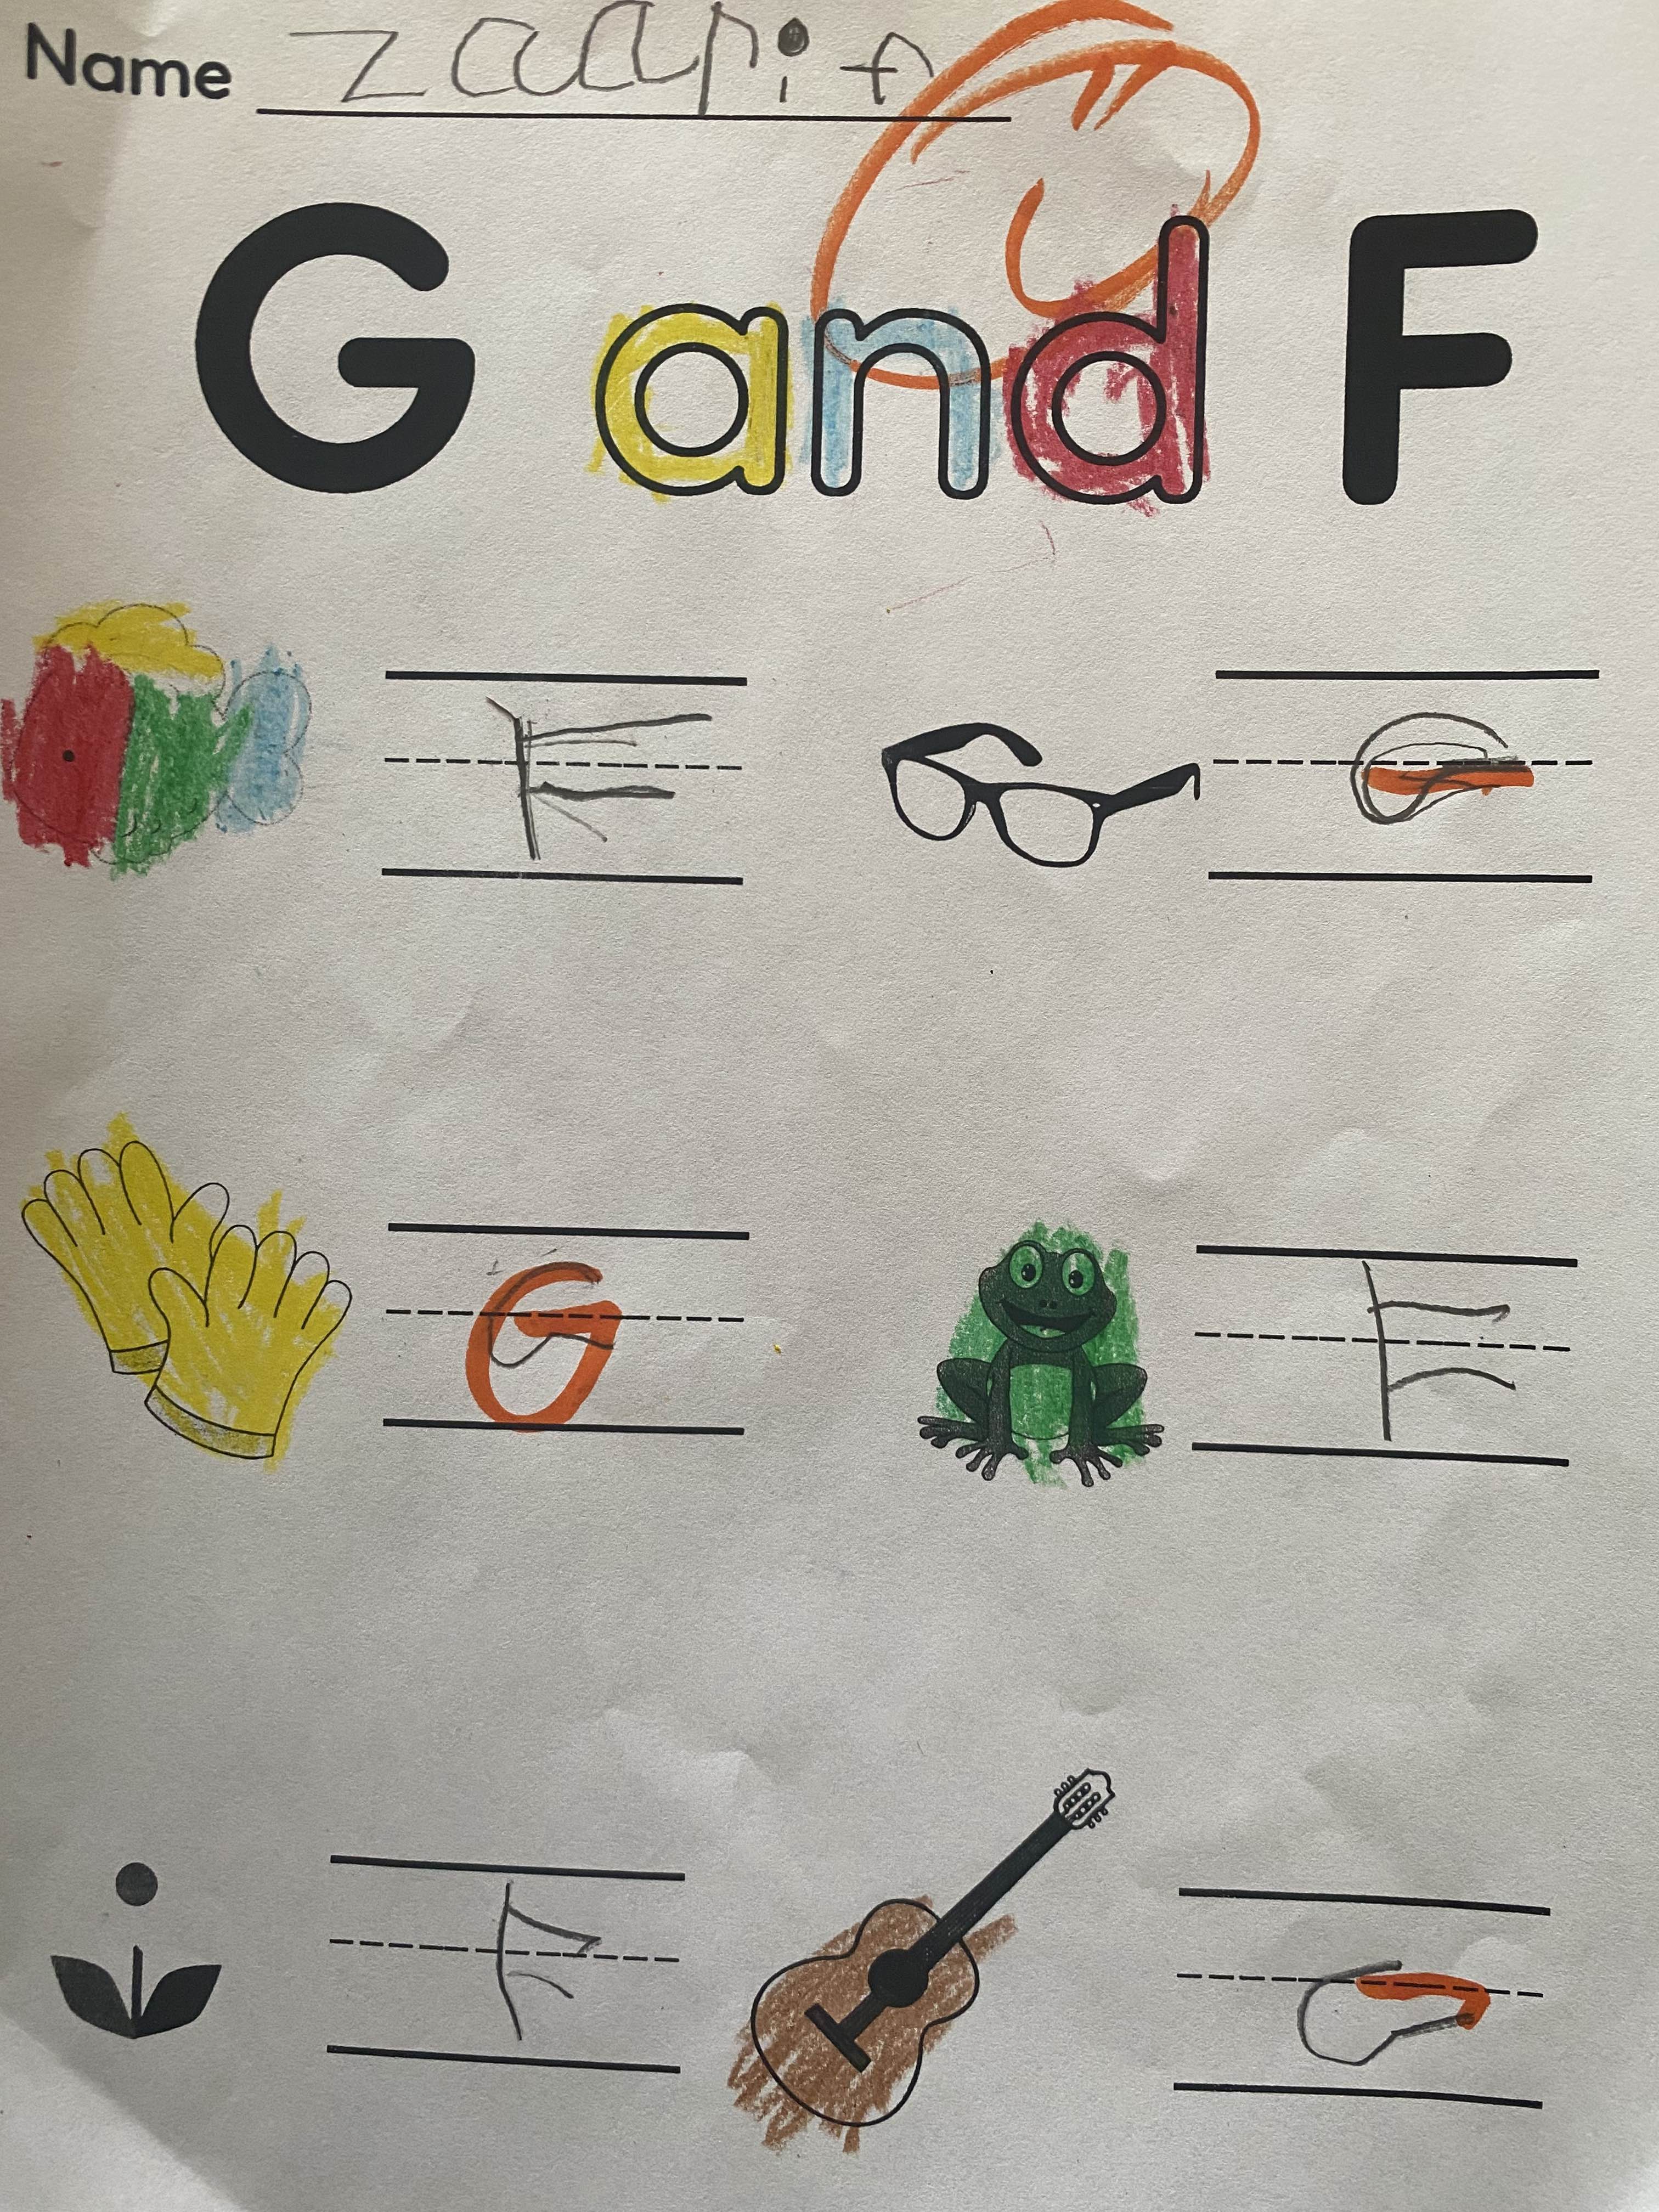 Name zaarif
G and F
F G
G F
F G